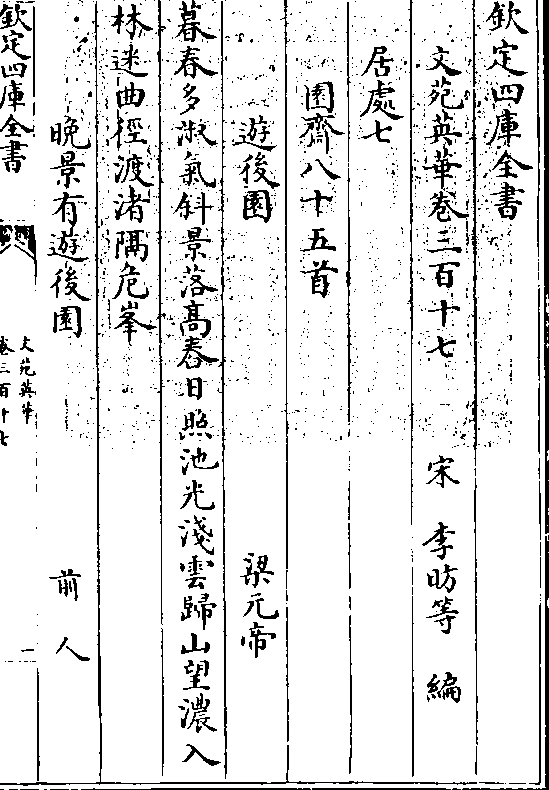 欽定四庫全書
文苑英華卷三百十七　宋　李昉等　編
居處七
園齋八十五首
遊後園　梁元帝
暮春多淑氣斜景落高舂日照池光淺雲歸山望濃入
林迷曲徑渡渚隔危峯
晚景有遊後園　前人
欽定四庫全書
文苑英華
卷三百十七
一